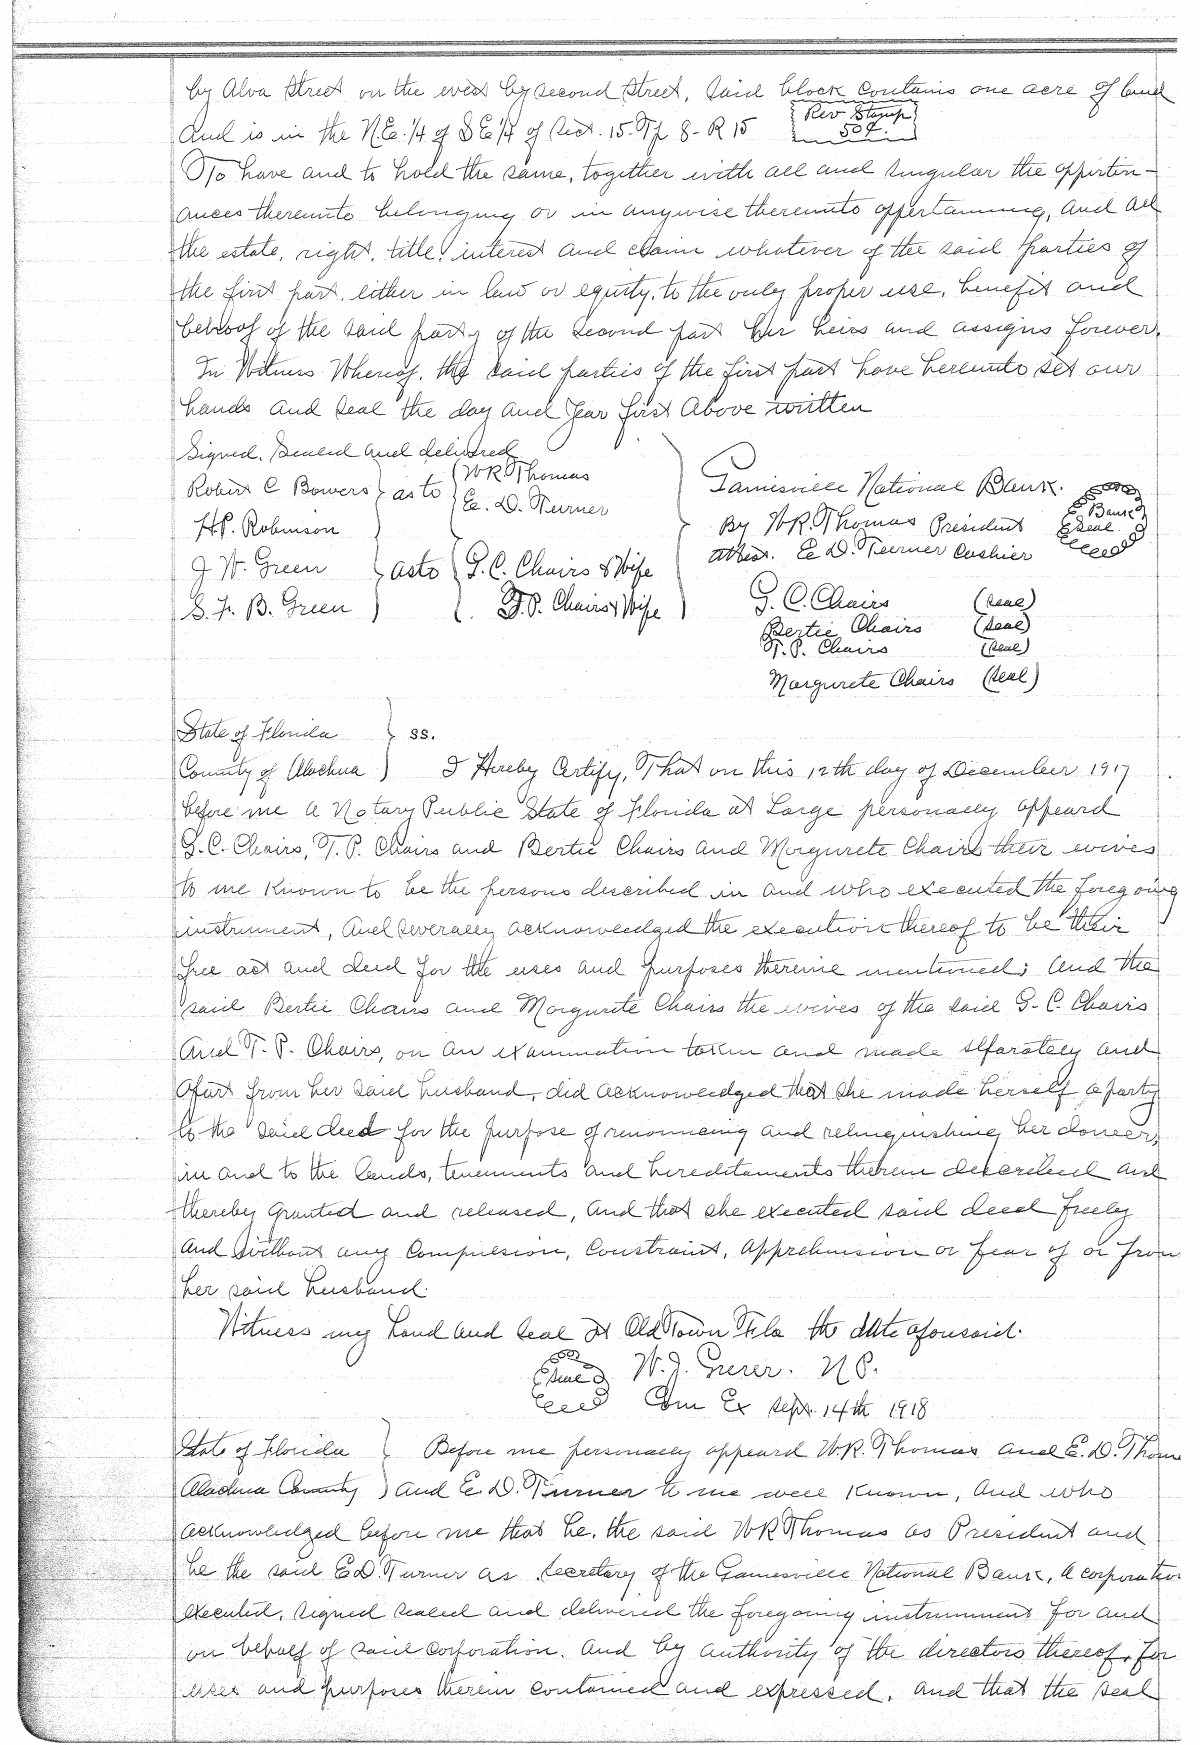 by Alva Street on the west by second Street, said block contains one acre of land
and is in the N.E. 1/4 of S E 1/4 of Sect. 15. Tp 8 - R 15
Rev Stamp
50¢.
To have and to hold the same, together with all and singular the apperten-
ances thereunto belonging or in anywise thereunto appertaining, and all
the estate, right, title, interest and claim whatever of the said parties of
the first part, either in law or equity, to the only proper use, benefit and
behoof of the said party of the second part her heirs and assigns forever.
In Witness Whereof, the said parties of the first part have hereunto set our
hands and seal the day and Year first above written
Signed, Sealed and delivered
Robert C Bowers } as to { W R Thomas
H.P. Robinson E. D. Turner
J. W. Green } as to { G. C. Chairs & Wife
S. F. B. Green T. P. Chairs & Wife
Gainesville National Bank.
By W.R. Thomas President
attest. E. D. Turner Cashier
Bank
Seal
G. C. Chairs (seal)
Bertie Chairs (seal)
T. P. Chairs (seal)
Morgurete Chairs (seal)
State of Florida } ss.
County of Alachua ) I Hereby Certify, That on this 12th day of December 1917
before me a Notary Public State of Florida at Large personally appeard
G. C. Chairs, T. P. Chairs and Bertie Chairs and Morgurete Chairs their wives
to me known to be the persons described in and who executed the foregoing
instrument, and severally acknowledged the execution thereof to be their
free act and deed for the uses and purposes thereine mentioned; and the
said Bertie Chairs and Morgurete Chairs the wives of the said G. C. Chairs
and T. P. Chairs, on an examination taken and made seperately and
apart from her said husband, did acknowledged that she made herself a party
to the said deed for the purpose of renouncing and relinquishing her dower,
in and to the lands, tenements and hereditaments therein described and
thereby granted and released, and that she executed said deed freely
and without any compulsion, constraint, apprehension or fear of or from
her said husband.
Witness my hand and seal at Old Town Fla the date aforesaid.
Seal W. J. N P.
Com Ex Sept. 14th 1918
State of Florida } Before me personally appeard W.R. Thomas and E. D. Thom
Alachua County ) and E. D. Turner to me well known, and who
acknowledged before me that he, the said W R Thomas as President and
he the said E D. Turner as Secretary of the Gainesville National Bank, a corporation
executed, signed sealed and delivered the foregoing instrument for and
on behalf of said corporation, and by authority of the directors thereof, for
uses and purposes therein contained and expressed, and that the seal